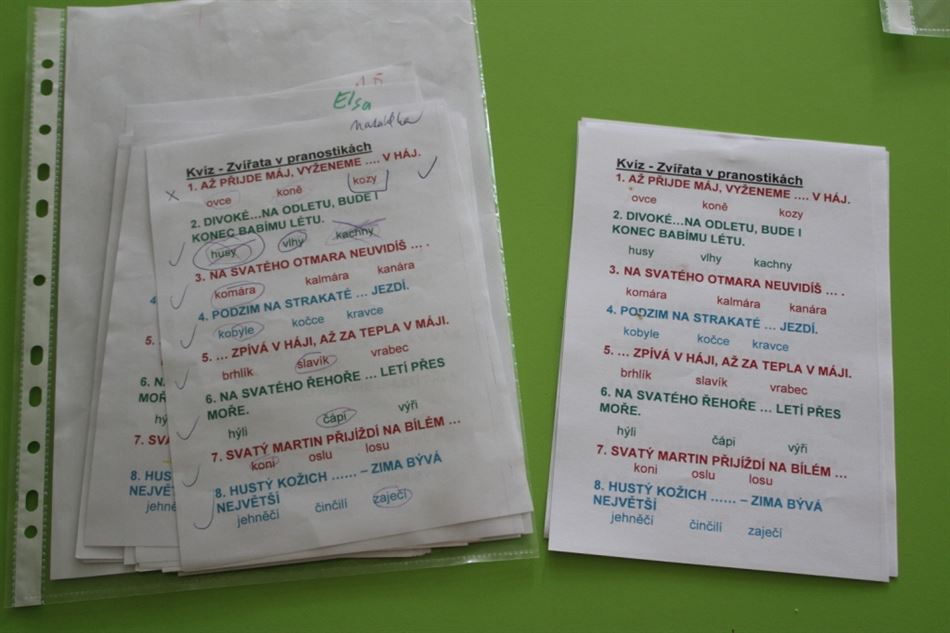 Elsa
Kvíz - Zvířata v pranostikách
x 1. AŽ PŘIJDE MÁJ, VYŽENEME .... V HÁJ.
ovce koně kozy
2. DIVOKÉ...NA ODLETU, BUDE I
KONEC BABÍMU LÉTU.
husy vlhy kachny
3. NA SVATÉHO OTMARA NEUVIDÍŠ ... .
komára kalmára kanára
4. PODZIM NA STRAKATÉ ... JEZDÍ.
kobyle kočce kravce
5. ... ZPÍVÁ V HÁJI, AŽ ZA TEPLA V MÁJI.
brhlík slavík vrabec
6. NA SVATÉHO ŘEHOŘE ... LETÍ PŘES
MOŘE.
hýli čápi výři
7. SVATÝ MARTIN PŘIJÍŽDÍ NA BÍLÉM ...
koni oslu losu
8. HUSTÝ KOŽICH ...... – ZIMA BÝVÁ
NEJVĚTŠÍ
jehněčí činčilí zaječí
4.
5.
6. N
MOŘ
hý
7. SVA
8. HUS
NEJV
jehně
Kvíz - Zvířata v pranostikách
1. AŽ PŘIJDE MÁJ, VYŽENEME .... V HÁJ.
ovce koně kozy
2. DIVOKÉ...NA ODLETU, BUDE I
KONEC BABÍMU LÉTU.
husy vlhy kachny
3. NA SVATÉHO OTMARA NEUVIDÍŠ ... .
komára kalmára kanára
4. PODZIM NA STRAKATÉ ... JEZDÍ.
kobyle kočce kravce
5. ... ZPÍVÁ V HÁJI, AŽ ZA TEPLA V MÁJI.
brhlík slavík vrabec
6. NA SVATÉHO ŘEHOŘE ... LETÍ PŘES
MOŘE.
hýli čápi výři
7. SVATÝ MARTIN PŘIJÍŽDÍ NA BÍLÉM ...
koni oslu losu
8. HUSTÝ KOŽICH ...... – ZIMA BÝVÁ
NEJVĚTŠÍ
jehněčí činčilí zaječí